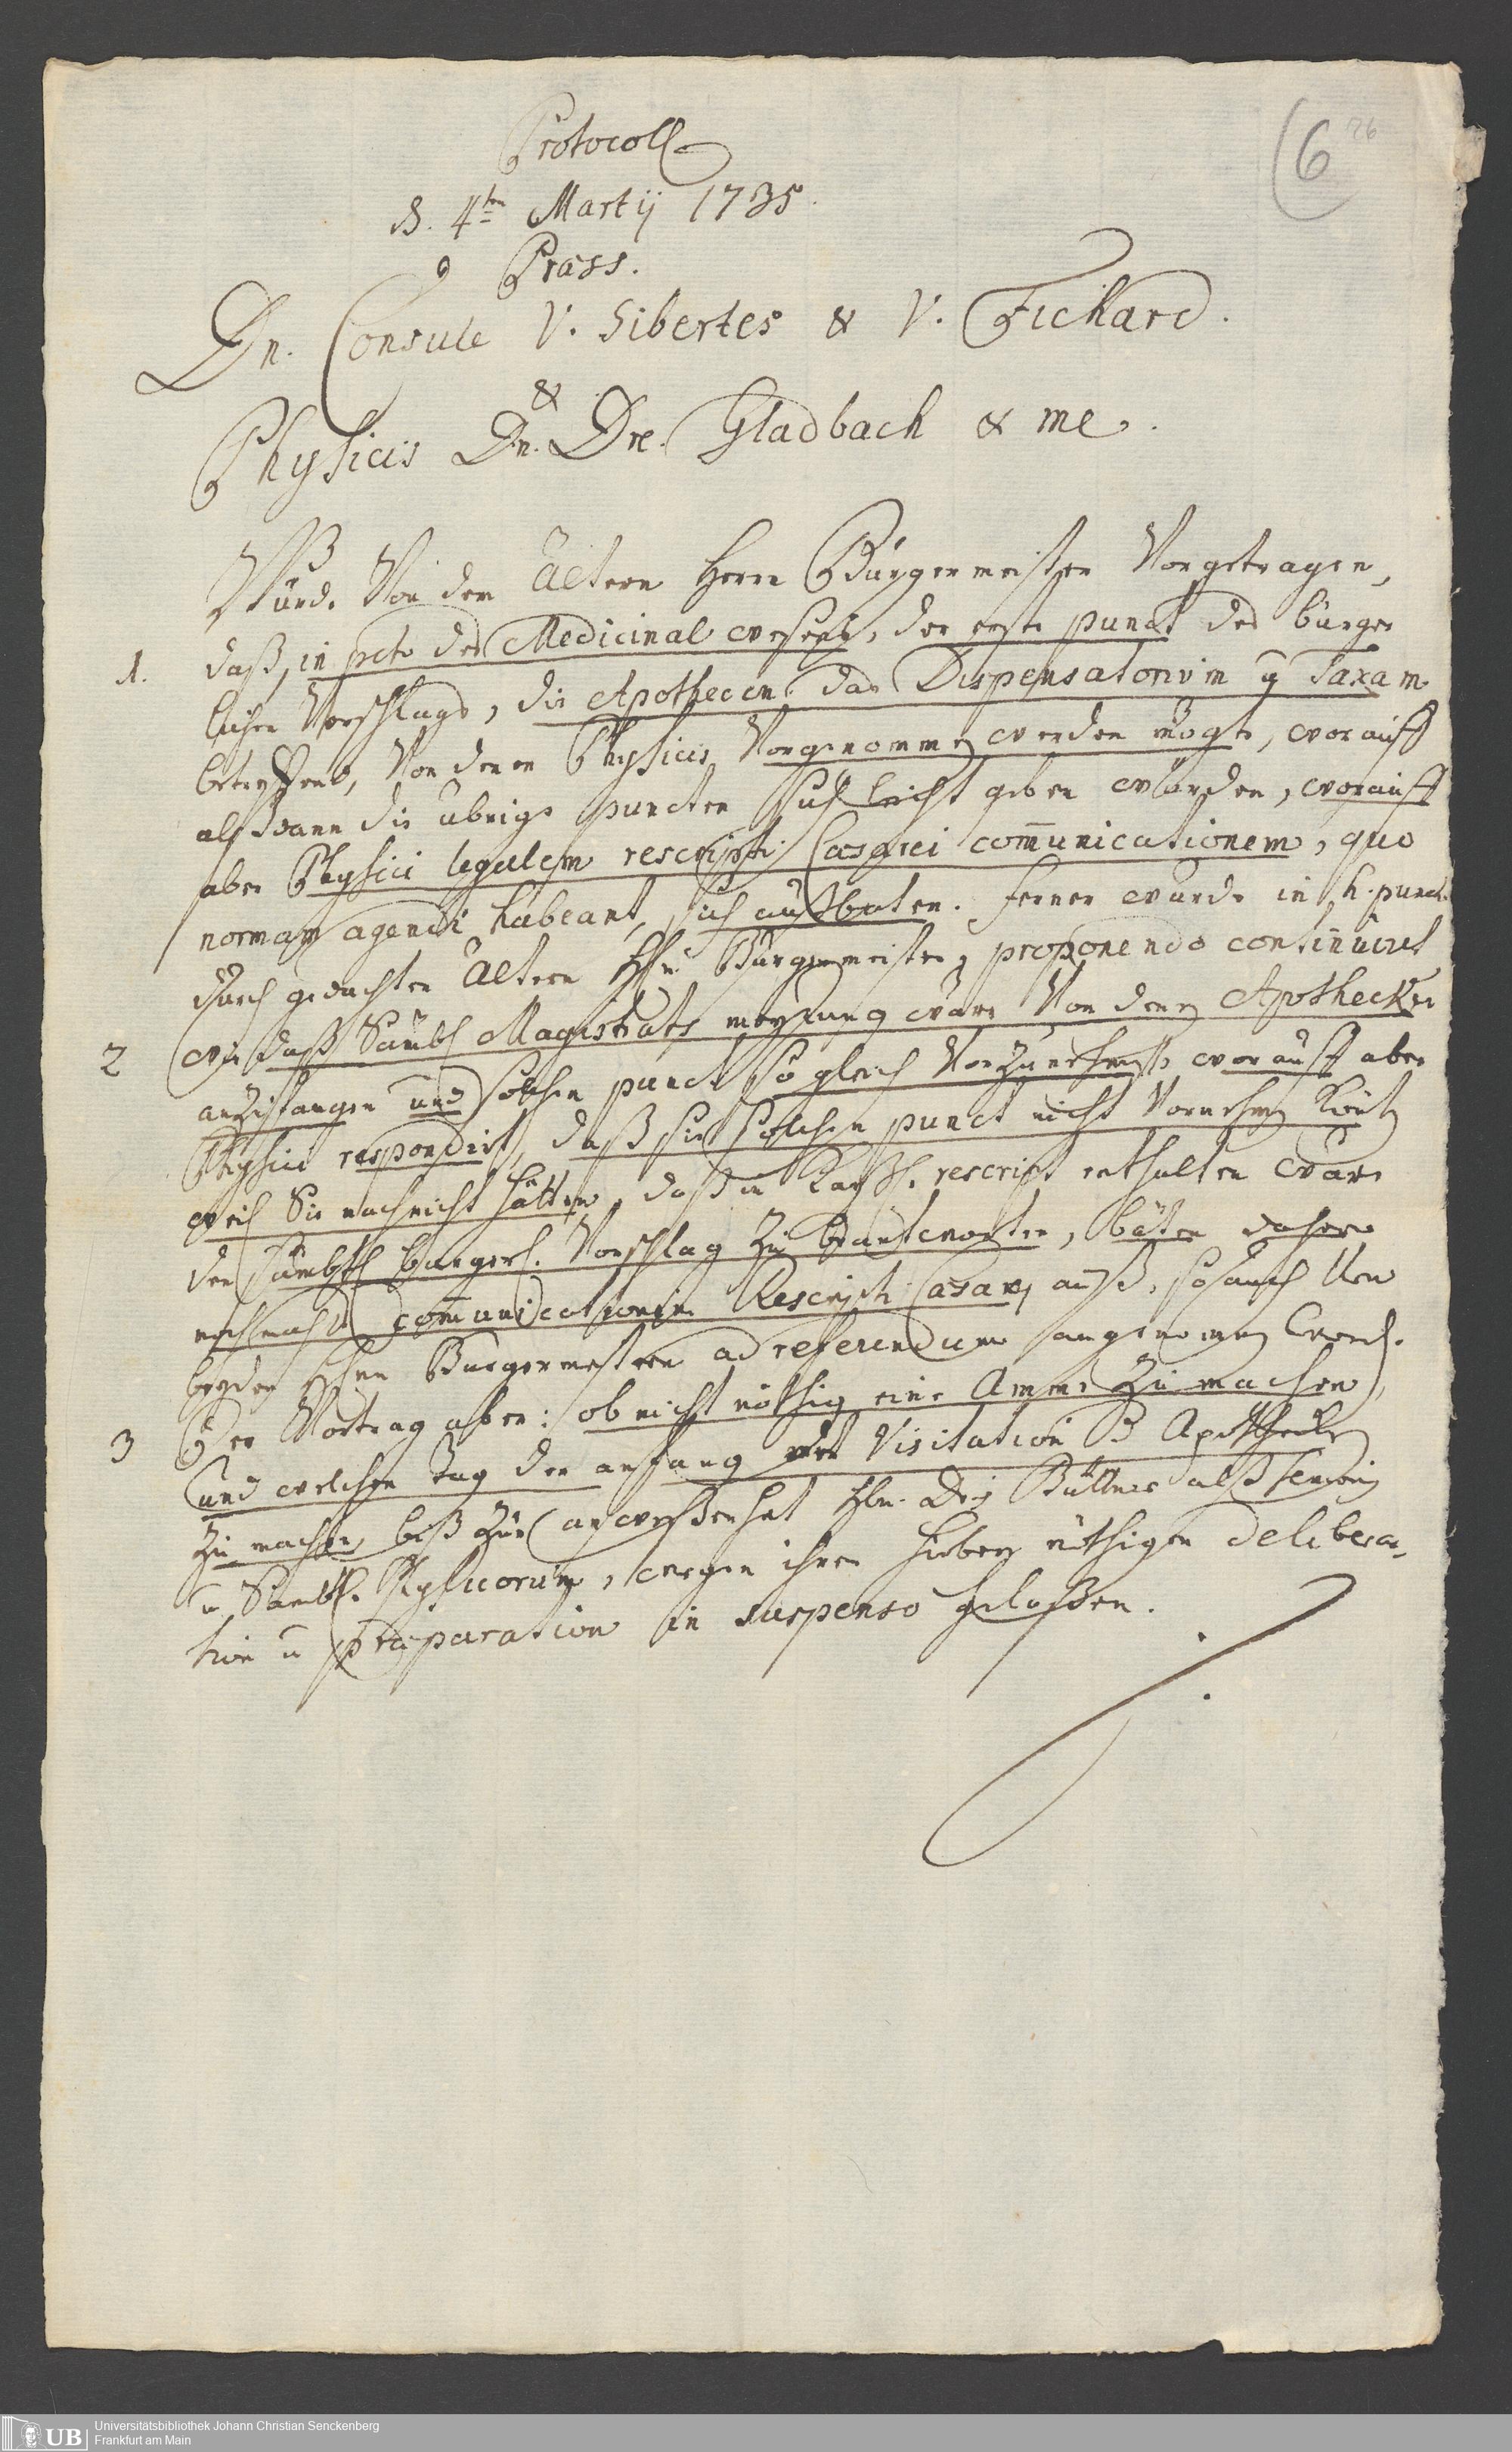 Protocoll
d. 4ten Martij 1735.
Præss.
Dn. Consule V. Sibertes & V. Fichard.
&
Physicis Dn. Dre. Gladbach & me.
6
26
Würd. Von dem ältern Herrn Bürgermeister Vorgetragen,
1. daß, in pcto des Medicinal weßens, der erste punct des bürger
lichen Vorschlags, die Apothecen, das Dispensatorium & Taxam
betreffend, Von denen Physicis Vorgenommen werden mögte, worauff
alßdann die übrige puncten sich leicht geben würden, worauff
aber Physici legalem rescripti Cæsarei com̄unicationem, quo
normam agendi habeant, sich außbaten. Ferner wurde in h. punct
durch gedachten ältern Hhn Bürgermeister, proponendo continuiret
2 wie daß Sämbtl Magistrats meynung wäre Von denen Apothecken
anzufangen und solchen punct so gleich Vorzunehmen, worauff aber
Physici respondirt, daß sie solchen punct nicht Vornehmen könten
weil Sie nachricht hätten, daß im Kayßl. rescript enthalten wäre
den sämbtl burgerl. Vorschlag zu beantworten, bäten daher
nochmahls com̄unicationem Rescripti Cæsarei auß, so auch Von
beyden Hhnn Burgermeistern ad referendum angenommen word.
3 Der Vortrag aber: ob nicht nöthig eine Amme zu machen,
und welchen Tag der anfang der Visitation d Apothecken
zu machen, biß zur anweßenheit Hhn. Dris Büttner alß Senioris
u. Sämbtl. Physicorum, wegen ihrer hierbey nöthigen delibera-
tion u præparation in suspenso gelaßen.
Universitätsbibliothek Johann Christian Senckenberg
UB
Frankfurt am Main